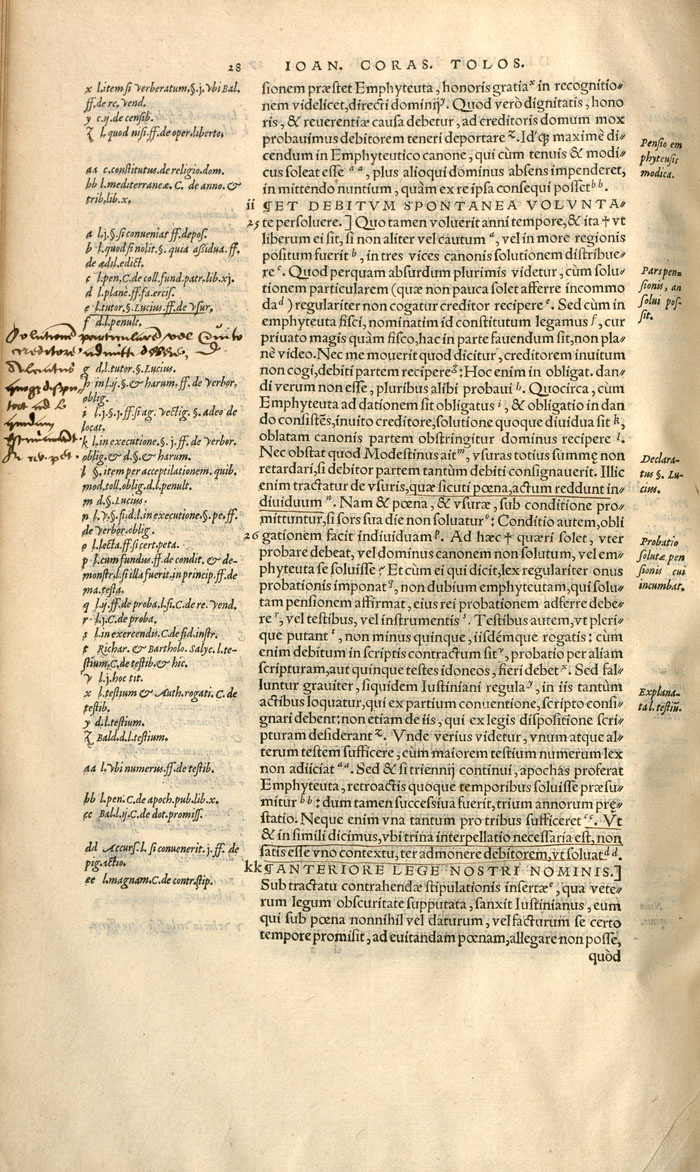 28 IOAN. CORAS. TOLOS.
sionem præstet Emphyteuta, honoris gratiaˣ in recognitio=
nem videlicet, directi dominijʸ. Quod verò dignitatis, hono
ris, & reuerentiæ causa debetur, ad creditoris domum mox
probauimus debitorem teneri deportare ᶻ. Id'q; maximè di=
cendum in Emphyteutico canone, qui cùm tenuis & modi=
cus soleat esse ᵃᵃ, plus alioqui dominus absens impenderet,
in mittendo nuntium, quàm ex re ipsa consequi posset ᵇᵇ.
ii ¶ET DEBITVM SPONTANEA VOLVNTA=
25 te persoluere. ] Quo tamen voluerit anni tempore, & ita † vt
liberum ei sit, si non aliter vel cautum ᵃ, vel in more regionis
positum fuerit ᵇ, in tres vices canonis solutionem distribue=
re ᶜ. Quod perquam absurdum plurimis videtur, cùm solu=
tionem particularem (quæ non pauca solet afferre incommo
da ᵈ) regulariter non cogatur creditor recipere ᵉ. Sed cùm in
emphyteuta fisci, nominatim id constitutum legamus ᶠ, cur
priuato magis quàm fisco, hac in parte fauendum sit, non pla=
nè video. Nec me mouerit quod dicitur, creditorem inuitum
non cogi, debiti partem recipere ᵍ: Hoc enim in obligat. dan=
di verum non esse, pluribus alibi probaui ʰ. Quocirca, cùm
Emphyteuta ad dationem sit obligatus ⁱ, & obligatio in dan
do consistẽs, inuito creditore, solutione quoque diuidua sit ᵏ,
oblatam canonis partem obstringitur dominus recipere ˡ.
Nec obstat quod Modestinus ait ᵐ, vsuras totius summę non
retardari, si debitor partem tantùm debiti consignauerit. Illic
enim tractatur de vsuris, quæ sicuti pœna, actum reddunt in=
diuiduum ⁿ. Nam & pœna, & vsuræ, sub conditione pro=
mittuntur, si sors sua die non soluatur ᵒ: Conditio autem, obli
26 gationem facit indiuiduam ᵖ. Ad hæc † quæri solet, vter
probare debeat, vel dominus canonem non solutum, vel em=
phyteuta se soluisse? Et cùm ei qui dicit, lex regulariter onus
probationis imponat ᑫ, non dubium emphyteutam, qui solu=
tam pensionem affirmat, eius rei probationem adferre debe=
re ʳ, vel testibus, vel instrumentis ˢ. Testibus autem, vt pleri=
que putant ᵗ, non minus quinque, iisdémque rogatis: cùm
enim debitum in scriptis contractum sit ᵛ, probatio per aliam
scripturam, aut quinque testes idoneos, fieri debet ˣ. Sed fal=
luntur grauiter, siquidem Iustiniani regula ʸ, in iis tantùm
actibus loquatur, qui ex partium conuentione, scripto consi=
gnari debent: non etiam de iis, qui ex legis dispositione scri=
pturam desiderant ᶻ. Vnde verius videtur, vnum atque al=
terum testem sufficere, cùm maiorem testium numerum lex
non adiiciat ᵃᵃ. Sed & si triennij continui, apochas proferat
Emphyteuta, retroactis quoque temporibus soluisse præsu=
mitur ᵇᵇ: dum tamen successiua fuerit, trium annorum prę=
statio. Neque enim vna tantum pro tribus sufficeret ᶜᶜ. Vt
& in simili dicimus, vbi trina interpellatio necessaria est, non
satis esse vno contextu, ter admonere debitorem, vt soluat ᵈᵈ.
kk ¶ANTERIORE LEGE NOSTRI NOMINIS.]
Sub tractatu contrahendæ stipulationis insertæ ᵉ, qua vete=
rum legum obscuritate supputata, sanxit Iustinianus, eum
qui sub pœna nonnihil vel daturum, vel facturum se certo
tempore promisit, ad euitandam pœnam, allegare non posse,
quòd
x l. item si verberatum. §. j. vbi Bal.
ff. de re. vend.
y c. ij. de censib.
ȥ l. quod nisi. ff. de oper. liberto.
aa c. constitutus. de religio. dom.
bb l. mediterraneæ. C. de anno. &
trib. lib. x.
a l. j. §. si conueniat ff. depos.
b l. quod si nolit. §. quia assidua. ff.
de ædil. edict.
c l. pen. C. de coll. fund. patr. lib. xj.
d l. planè. ff. fa. ercis.
e l. tutor. §. Lucius. ff. de vsur.
f d. l. penult.
Solutionem particularem
g d. l. tutor. §. Lucius.
h in l. ij. §. & harum. ff. de verbor.
oblig.
i l. j. §. j. ff. si ag. vectig. §. adeo de
locat.
k l. in executione. §. j. ff. de verbor.
oblig. & d. §. & harum.
l §. item per acceptilationem. quib.
mod. toll. oblig. d. l. penult.
m d. §. Lucius.
n l. v. §. si. d. l. in executione. §. pe. ff.
de verbor. oblig.
o l. lecta. ff. si cert. peta.
p l. cum fundus. ff. de condit. & de=
monstr. l. si illa fuerit. in princip. ff. de
ma. testa.
q l. ij. ff. de proba. l. si. C. de re. vend.
r l. j. C. de proba.
s l. in exercendis. C. de fid. instr.
t Richar. & Bartholo. Salyc. l. te=
stium. C. de testib. & hic.
v l. j. hoc tit.
x l. testium & Auth. rogati. C. de
testib.
y d. l. testium.
ȥ Bald. d. l. testium.
aa l. vbi numerus. ff. de testib.
bb l. pen. C. de apoch. pub. lib. x.
cc Bal. l. ij. C. de dot. promiss.
dd Accurs. l. si conuenerit. j. ff. de
pig. actio.
ee l. magnam. C. de contr. stip.
Pensio em
phyteusis
modica.
Pars pen=
sionis, an
solui pos=
sit.
Declara=
tus §. Lu=
cius.
Probatio
solutæ pen
sionis cui
incumbat.
Explana=
ta l. testiũ.